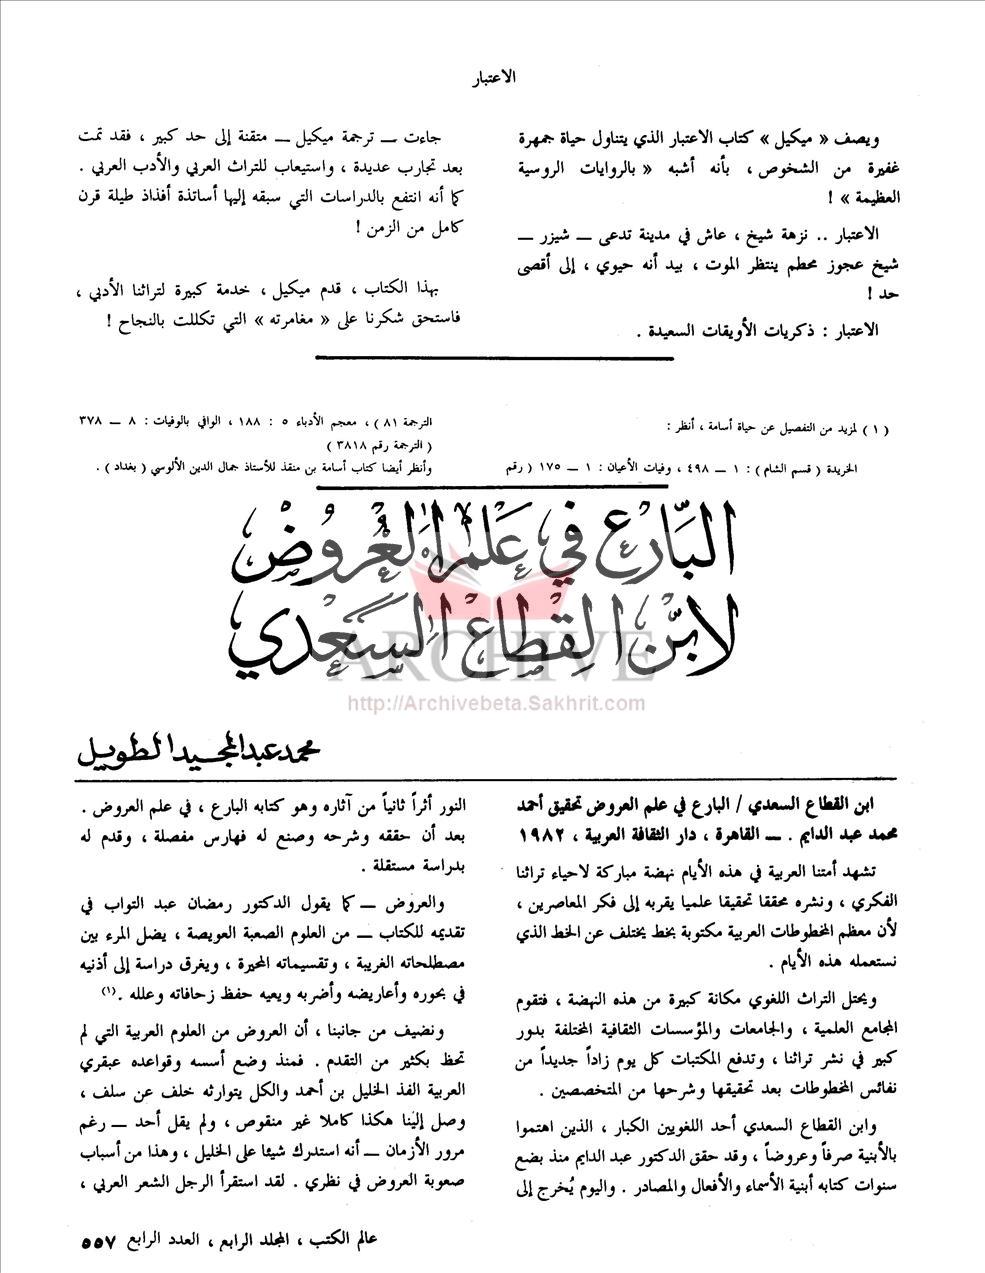 الاعتبار
ويصف « ميكيل » كتاب الاعتبار الذي يتناول حياة جمهرة
غفيرة من الشخوص ، بأنه أشبه « بالروايات الروسية
العظيمة » !
الاعتبار .. نزهة شيخ ، عاش في مدينة تدعى ــ شيزر ــ
شيخ عجوز محطم ينتظر الموت ، بيد أنه حيوي ، إلى أقصى
حد !
الاعتبار : ذكريات الأويقات السعيدة .
جاءت ــ ترجمة ميكيل ــ متقنة إلى حد كبير ، فقد تمت
بعد تجارب عديدة ، واستيعاب للتراث العربي والأدب العربي .
كما أنه انتفع بالدراسات التي سبقه إليها أساتذة أفذاذ طيلة قرن
كامل من الزمن !
بهذا الكتاب ، قدم ميكيل ، خدمة كبيرة لتراثنا الأدبي ،
فاستحق شكرنا على « مغامرته » التي تكللت بالنجاح !
( ١ ) لمزيد من التفصيل عن حياة أسامة ، أنظر :
الخريدة ( قسم الشام ) : ١ ــ ٤٩٨ ، وفيات الأعيان : ١ ــ ١٧٥ ( رقم
الترجمة ٨١ ) ، معجم الأدباء ٥ : ١٨٨ ، الوافي بالوفيات : ٨ ــ ٣٧٨
( الترجمة رقم ٣٨١٨ )
وأنظر أيضا كتاب أسامة بن منقذ للأستاذ جمال الدين الألوسي ( بغداد ) .
البَّارِع في عَلم العُروُض
لابن القِطاع السَعْدي
ARCHIVE
http://Archivebeta.Sakhrit.com
محمد عبد المجيد الطويل
ابن القطاع السعدي / البارع في علم العروض تحقيق أحمد
محمد عبد الدايم . ــ القاهرة ، دار الثقافة العربية ، ١٩٨٢
تشهد أمتنا العربية في هذه الأيام نهضة مباركة لاحياء تراثنا
الفكري ، ونشره محققا تحقيقا علميا يقربه إلى فكر المعاصرين ،
لأن معظم المخطوطات العربية مكتوبة بخط يختلف عن الخط الذي
نستعمله هذه الأيام .
ويحتل التراث اللغوي مكانة كبيرة من هذه النهضة ، فتقوم
المجامع العلمية ، والجامعات والمؤسسات الثقافية المختلفة بدور
كبير في نشر تراثنا ، وتدفع المكتبات كل يوم زاداً جديداً من
نفائس المخطوطات بعد تحقيقها وشرحها من المتخصصين .
وابن القطاع السعدي أحد اللغويين الكبار ، الذين اهتموا
بالأبنية صرفاً وعروضاً ، وقد حقق الدكتور عبد الدايم منذ بضع
سنوات كتابه أبنية الأسماء والأفعال والمصادر . واليوم يُخرج إلى
النور أثراً ثانياً من آثاره وهو كتابه البارع ، في علم العروض .
بعد أن حققه وشرحه وصنع له فهارس مفصلة ، وقدم له
بدراسة مستقلة .
والعروض ــ كما يقول الدكتور رمضان عبد التواب في
تقديمه للكتاب ــ من العلوم الصعبة العويصة ، يضل المرء بين
مصطلحاته الغريبة ، وتقسيماته المحيرة ، ويغرق دراسة إلى أذنيه
في بحوره وأعاريضه وأضربه ويعيه حفظ زحافاته وعلله .(١)
ونضيف من جانبنا ، أن العروض من العلوم العربية التي لم
تحظ بكثير من التقدم . فمنذ وضع أسسه وقواعده عبقري
العربية الفذ الخليل بن أحمد والكل يتوارثه خلف عن سلف ،
وصل إلينا هكذا كاملا غير منقوص ، ولم يقل أحد ــ رغم
مرور الأزمان ــ أنه استدرك شيئا على الخليل ، وهذا من أسباب
صعوبة العروض في نظري . لقد استقرأ الرجل الشعر العربي ،
عالم الكتب ، المجلد الرابع ، العدد الرابع ٥٥٧